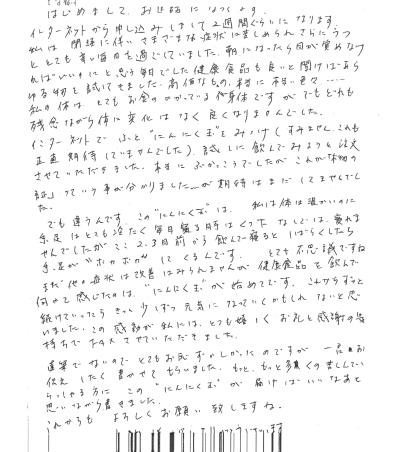 はじめまして、お世話になってます。
インターネットから申し込みしまして2週間ぐらいになります。
私は 閉経に伴いさまざまな症状に苦しめられさらにうつ
とともに辛い毎日を過ごしていました。朝になったら目が覚めなけ
ればいいのにと思う毎日でした健康食品も良いと聞けばあら
ゆる物を試してきました。高価なもの、本当に 色々・・・・
私の体は、とてもお金のかかっている体ですが でもどれも
残念ながら体に変化はなく良くなりませんでした。
インターネットで ふと"にんにく玉"をみつけ(すみません、これも
正直 期待していませんでした)、試しに飲んでみようと注文
させていただきました。本当に ぶかっこうでしたが これが本物の
証」っていう事が分かりました 期待はまだしてませんでし
た。
でも違うんです。この"にんにく玉"は、 私は体は温かいのに
手足はとても冷たく毎日寝る時はくつ下なしでは、寝れま
せんでしたがここ2.3日前から飲んで寝ると しばらくしたら
手足が"ポカポカ"してくるんです。 とても不思議ですね
まだ他の症状は改善はみられませんが 健康食品を飲んで
何かで感じたのは、"にんにく玉"が始めてです。これからずっと
続けていったら きっと少しずつ元気になっていくかもしれないと思
いました。この感動が私には、とても嬉しくお礼と感謝の気
持ちで FAXさせていただきました。
達筆でないのでとてもお恥ずかしかったのですが 一言お
伝えしたく書かせてもらいました。もっと、もっと多くの苦しんでい
らっしゃる方に この"にんにく玉"が届けばいいなあと
思いながら書きました。
これからも よろしくお願い致しますね。